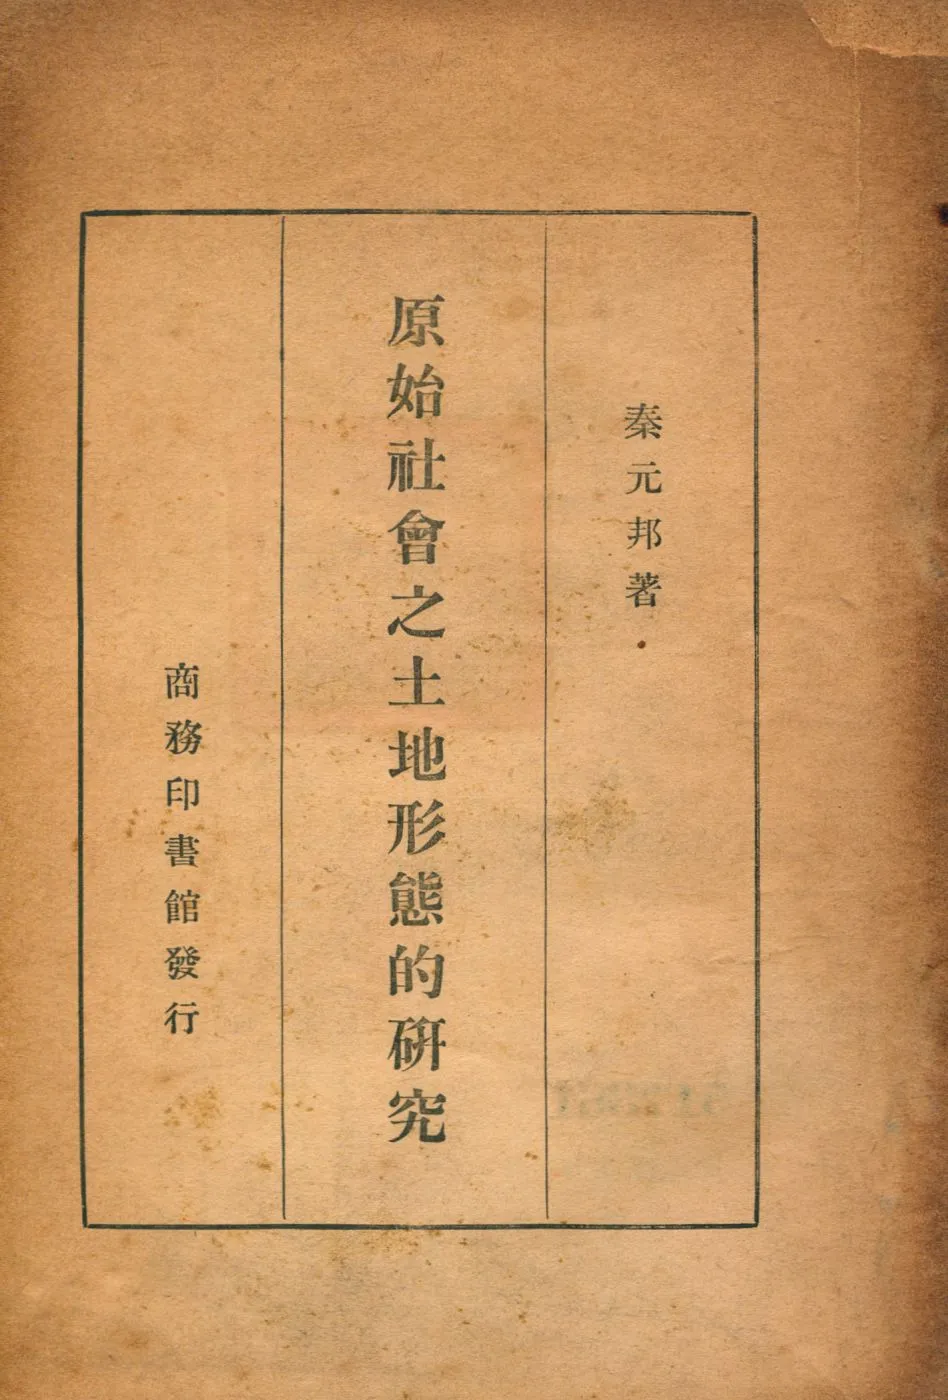 秦元邦著
原始社會之土地形態的研究
商務印書館發行